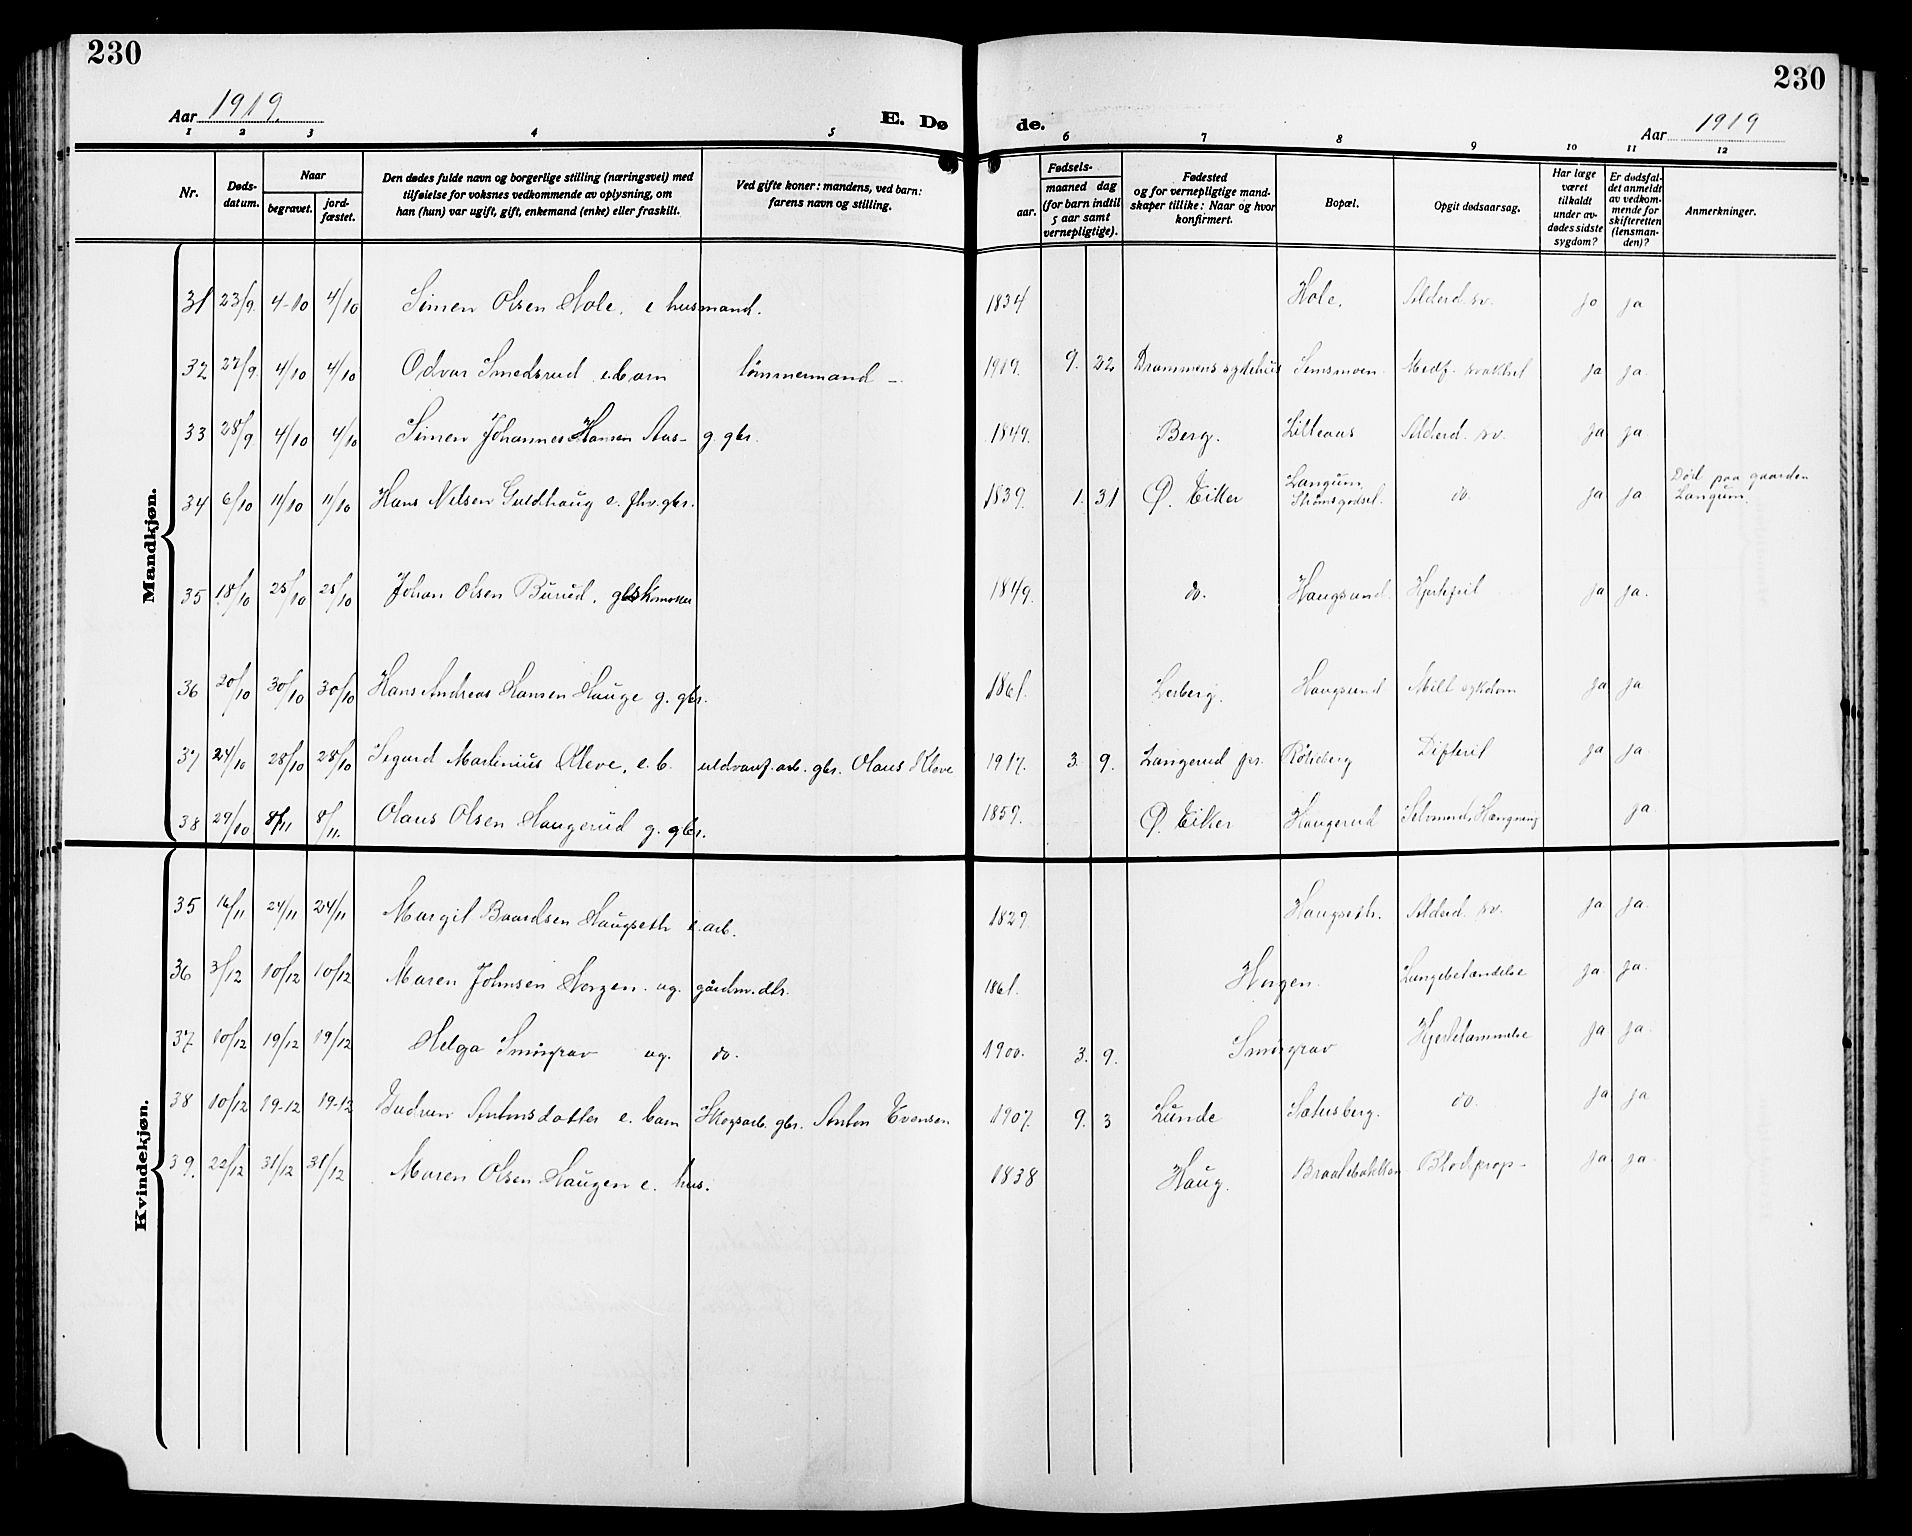 230
230
Aar 1919.
E. Dø
de.
Aar 1919
1 2 3 4 5
6 7 8 9 10 11 12
Nr.
Døds-
datum.
Naar
begravet.
jord-
fæstet.
Den dødes fulde navn og borgerlige stilling (næringsvei) med
tilføielse for voksnes vedkommende av oplysning, om
han (hun) var ugift, gift, enkemand (enke) eller fraskilt.
Ved gifte koner: mandens, ved barn:
farens navn og stilling.
Fødsels-
aar.
maaned dag
(for barn indtil
5 aar samt
vernepligtige).
Fødested
og for vernepligtige mand-
skaper tillike: Naar og hvor
konfirmert.
Bopæl.
Opgit dødsaarsag.
Har læge
været
tilkaldt
under av-
dødes sidste
sygdom?
Er dødsfal-
det anmeldt
av vedkom-
mende for
skifteretten
(lensman-
den)?
Anmerkninger.
Mandkjøn.
31 23/9. 4-10 4/10 Simen Olsen Hole. e husmand. 1834 Hole. Alderd. sv. ja ja
32 27/9. 4/10 4/10 Odvar Smedsrud e.barn tømmermand - 1919. 9. 22 Drammens sykehus Semsmoen Medf. svakhet ja ja
33 28/9 4/10 4/10 Simen Johannes Hansen Aas- g gbr. 1849. Berg. Lilleaas Alderd. sv. ja ja
34 6/10 11/10 11/10 Hans Nilsen Guldhaug e. fhv. gbr. 1839. 1. 31 Ø. Eiker Langum, Strømsgodset do. ja ja Død paa gaarden Langum.
35 18/10 25/10 25/10 Johan Olsen Burud, g skomaker 1849. do. Haugsund. Hjertefeil ja ja.
36 20/10 30/10 30/10 Hans Andreas Hansen Hauge g. gbr. 1861. Lerberg. Haugsund Milt sykdom ja ja
37 24/10 28/10 28/10 Sigurd Martinius Kleve, e. b. uldvarf. arb. gbr. Olaus Kleve 1917. 3. 9. Langerud pr. Difterit ja ja.
38 29/10 8/11 8/11. Olaus Olsen Haugerud g. gbr. 1859. Ø. Eiker Haugerud Selvmord, Hængning ja
Kvindekjøn.
35 16/11 24/11 24/11 Margit Baardsen Haugseth e. arb. 1829 Haugseth. Alderd. sv. ja ja.
36 3/12 10/12 10/12 Maren Johnsen Horgen. ug. gårdm. dtr. 1861. Horgen. Lungebetændelse ja ja.
37 10/12 19/12 19/12 Helga Smørgrav ug. do. 1900. 3. 9. Smørgrav Hjertelammelse ja ja.
38 10/12 19-12 19-12 Gudrun Antonsdatter e. barn Skogsarb. gbr. Anton Evensen 1907. 9. 3 Lunde Satusberg. do. ja ja
39. 22/12 31/12 31/12 Maren Olsen Haugen e. hus. 1838 Haug. Blodprop- ja ja.